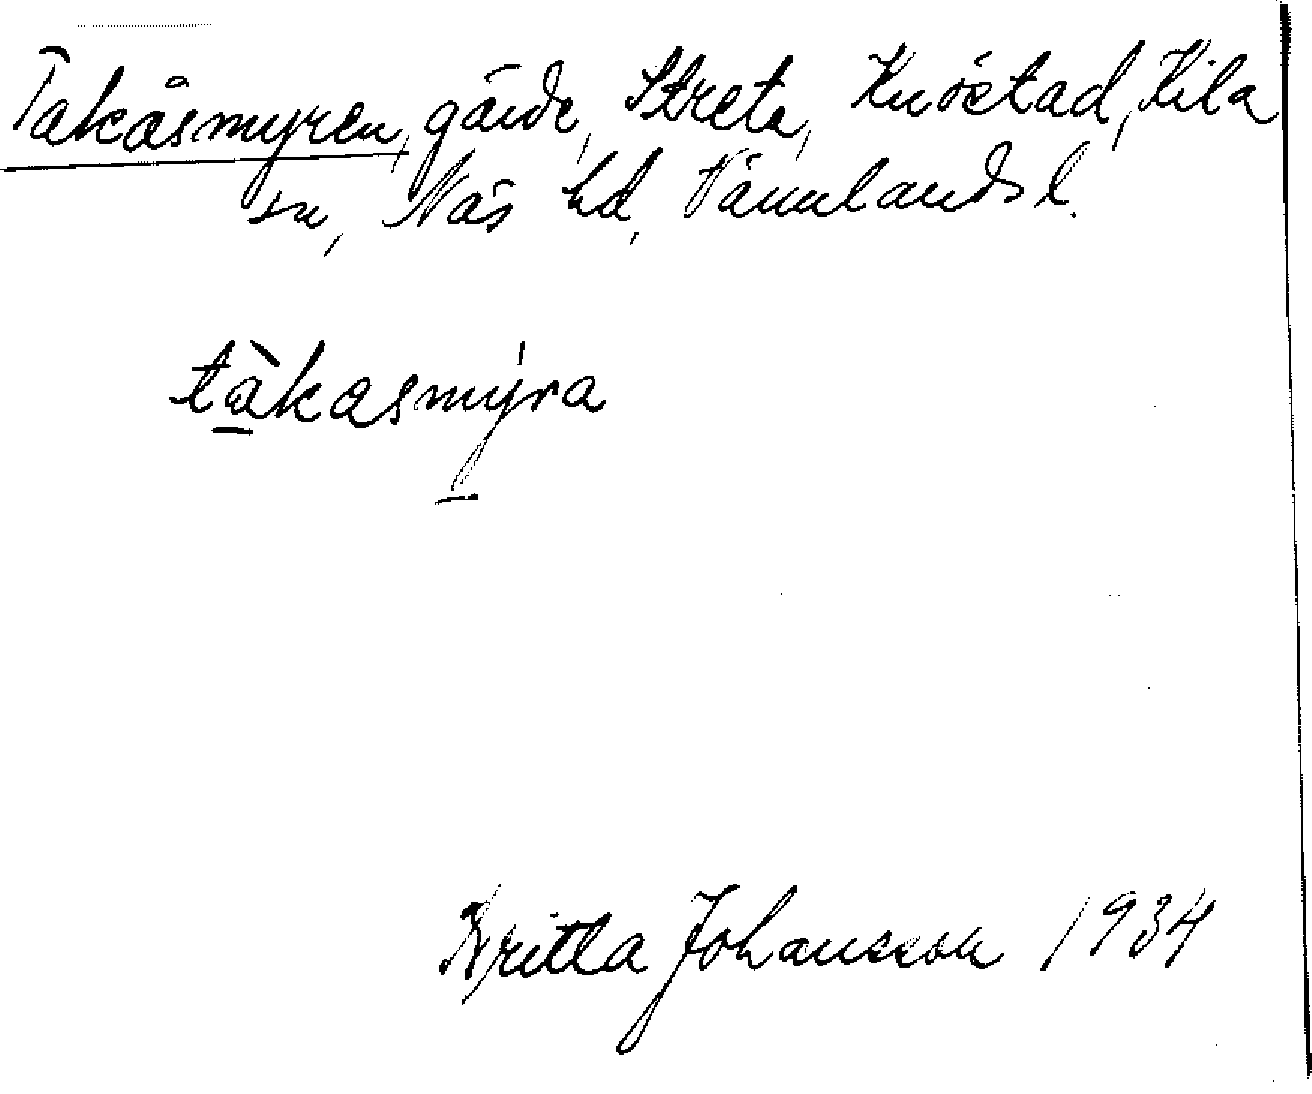 Takåsmyren, gärde, Streta, Knöstad, Kila
sn, Näs hd, Värmlands l.
tàkasmýra
Britta Johansson 1934